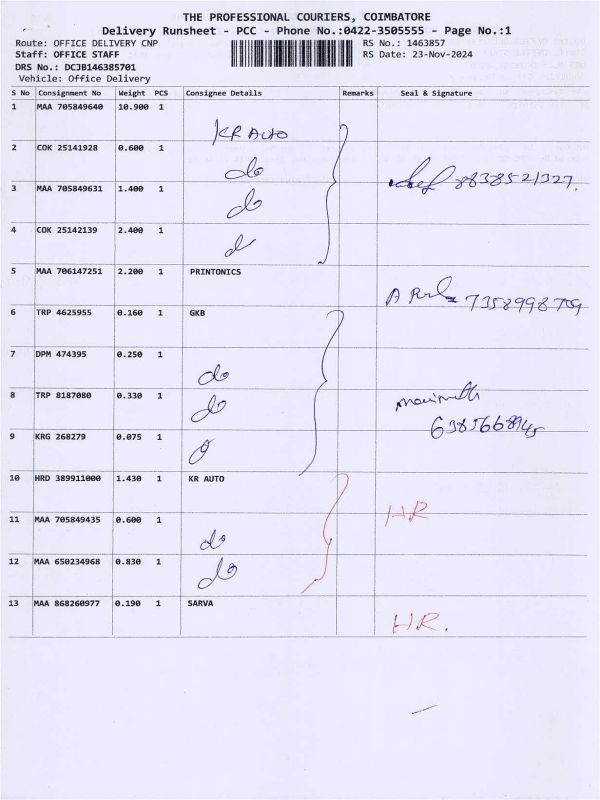 THE PROFESSIONAL COURIERS, COIMBATORE
Delivery Runsheet - PCC - Phone No.:0422-3505555 - Page No.:1
Route: OFFICE DELIVERY CNP RS No.: 1463857
Staff: OFFICE STAFF RS Date: 23-Nov-2024
DRS No.: DCJB146385701
Vehicle: Office Delivery
S No Consignment No Weight PCS Consignee Details Remarks Seal & Signature
1 MAA 705849640 10.900 1
KR AUTO
2 COK 25141928 0.600 1
do
8838521327.
3 MAA 705849631 1.400 1
do
4 COK 25142139 2.400 1
5 MAA 706147251 2.200 1 PRINTONICS
7358998709
6 TRP 4625955 0.160 1 GKB
7 DPM 474395 0.250 1
do
8 TRP 8187080 0.330 1
do
9 KRG 268279 0.075 1
10 HRD 389911000 1.430 1 KR AUTO
HR
11 MAA 705849435 0.600 1
do
12 MAA 650234968 0.830 1
do
13 MAA 868260977 0.190 1 SARVA
HR.